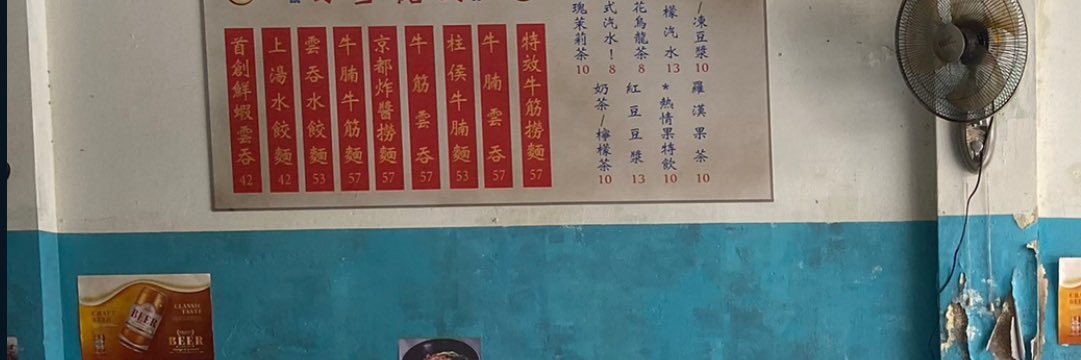 特效牛筋撈麵 57
牛腩雲吞 57
柱侯牛腩麵 53
牛筋雲吞 57
京都炸醬撈麵 57
牛腩牛筋麵 57
雲吞水餃麵 53
上湯水餃麵 42
首創鮮蝦雲吞 42
/凍豆漿 10
檬汽水 13
花烏龍茶 8
式汽水! 8
瑰茉莉茶 10
羅漢果茶 10
*熱情果特飲 10
紅豆豆漿 13
奶茶/檸檬茶 10
CRAFT
BEER
BEER
CLASSIC
TASTE
BEER